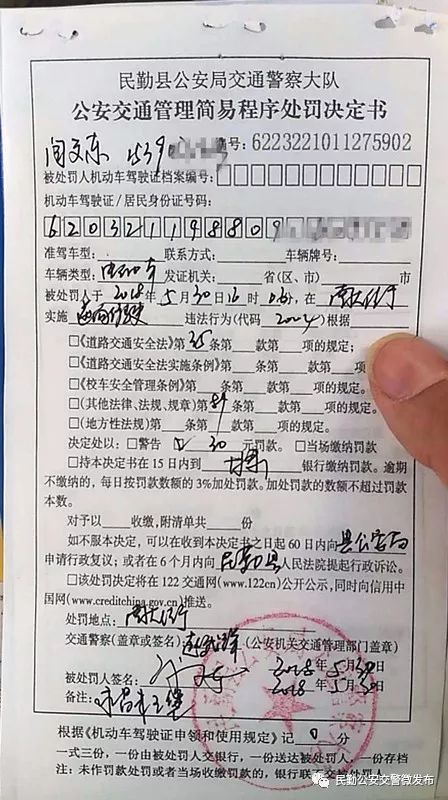 民勤县公安局交通警察大队
公安交通管理简易程序处罚决定书
编号:6223221011275902
被处罚人机动车驾驶证档案编号:
机动车驾驶证/居民身份证号码:
620321198809
准驾车型: 联系方式: 车辆牌号:
车辆类型: 发证机关: 省(区、市) 市
被处罚人于2018年5月30日16时06分,在
实施 违法行为(代码2004)根据
□《道路交通安全法》第35条第 款第 项的规定;
□《道路交通安全法实施条例》第 条第 款第 项的规定;
□《校车安全管理条例》第 条第 款第 项的规定;
□(其他法律、法规、规章)第 条第 款第 项的规定;
□(地方性法规)第 条第 款第 项的规定;
决定处以:□警告 ☑ 30 元罚款。 □当场缴纳罚款
□持本决定书在15日内到 甘肃 银行缴纳罚款。逾期
不缴纳的,每日按罚款数额的3%加处罚款。加处罚款的数额不超过罚款
本数。
对予以 收缴,附清单共 份
如不服本决定,可以在收到本决定书之日起60日内向县公安局
申请行政复议;或者在6个月内向民勤县人民法院提起行政诉讼。
□该处罚决定将在122交通网(www.122cn)公开公示,同时向信用中
国网(www.creditchina.gov.cn)推送。
处罚地点:
交通警察(盖章或签名) (公安机关交通管理部门盖章)
2018年5月30日
被处罚人签名: 2018年5月30日
备注:
根据《机动车驾驶证申领和使用规定》记 0 分
一式三份,一份由被处罚人交银行,一份送达被处罚人,一份存档
注:未作罚款处罚或者当场收缴罚款的,银行联
民勤公安交警微发布